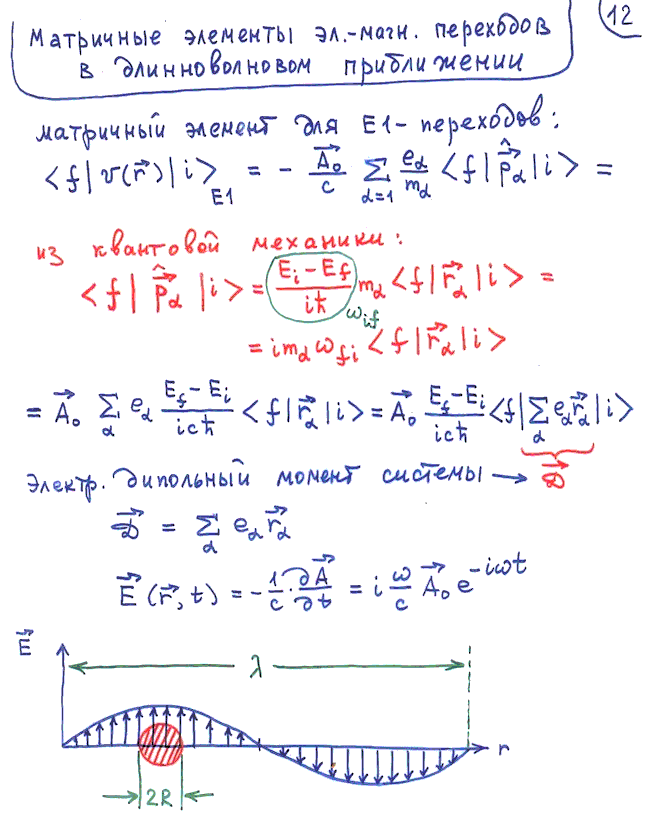 12
Матричные элементы эл.-магн. переходов
в длинноволновом приближении
матричный элемент для E1-переходов:
⟨f|v(r⃗)|i⟩_E1 = - A⃗₀/c ∑_{α=1} e_α/m_α ⟨f|p̂⃗_α|i⟩ =
из квантовой механики:
⟨f|p̂⃗_α|i⟩ = (E_i - E_f)/(iħ) m_α ⟨f|r⃗_α|i⟩ =
ω_if
= i m_α ω_fi ⟨f|r⃗_α|i⟩
= A⃗₀ ∑_α e_α (E_f - E_i)/(icħ) ⟨f|r⃗_α|i⟩ = A⃗₀ (E_f - E_i)/(icħ) ⟨f|∑_α e_α r⃗_α|i⟩
Электр. дипольный момент системы → D⃗
D⃗ = ∑_α e_α r⃗_α
E⃗(r⃗,t) = -1/c · ∂A⃗/∂t = i ω/c A⃗₀ e^{-iωt}
E⃗
λ
r
2R